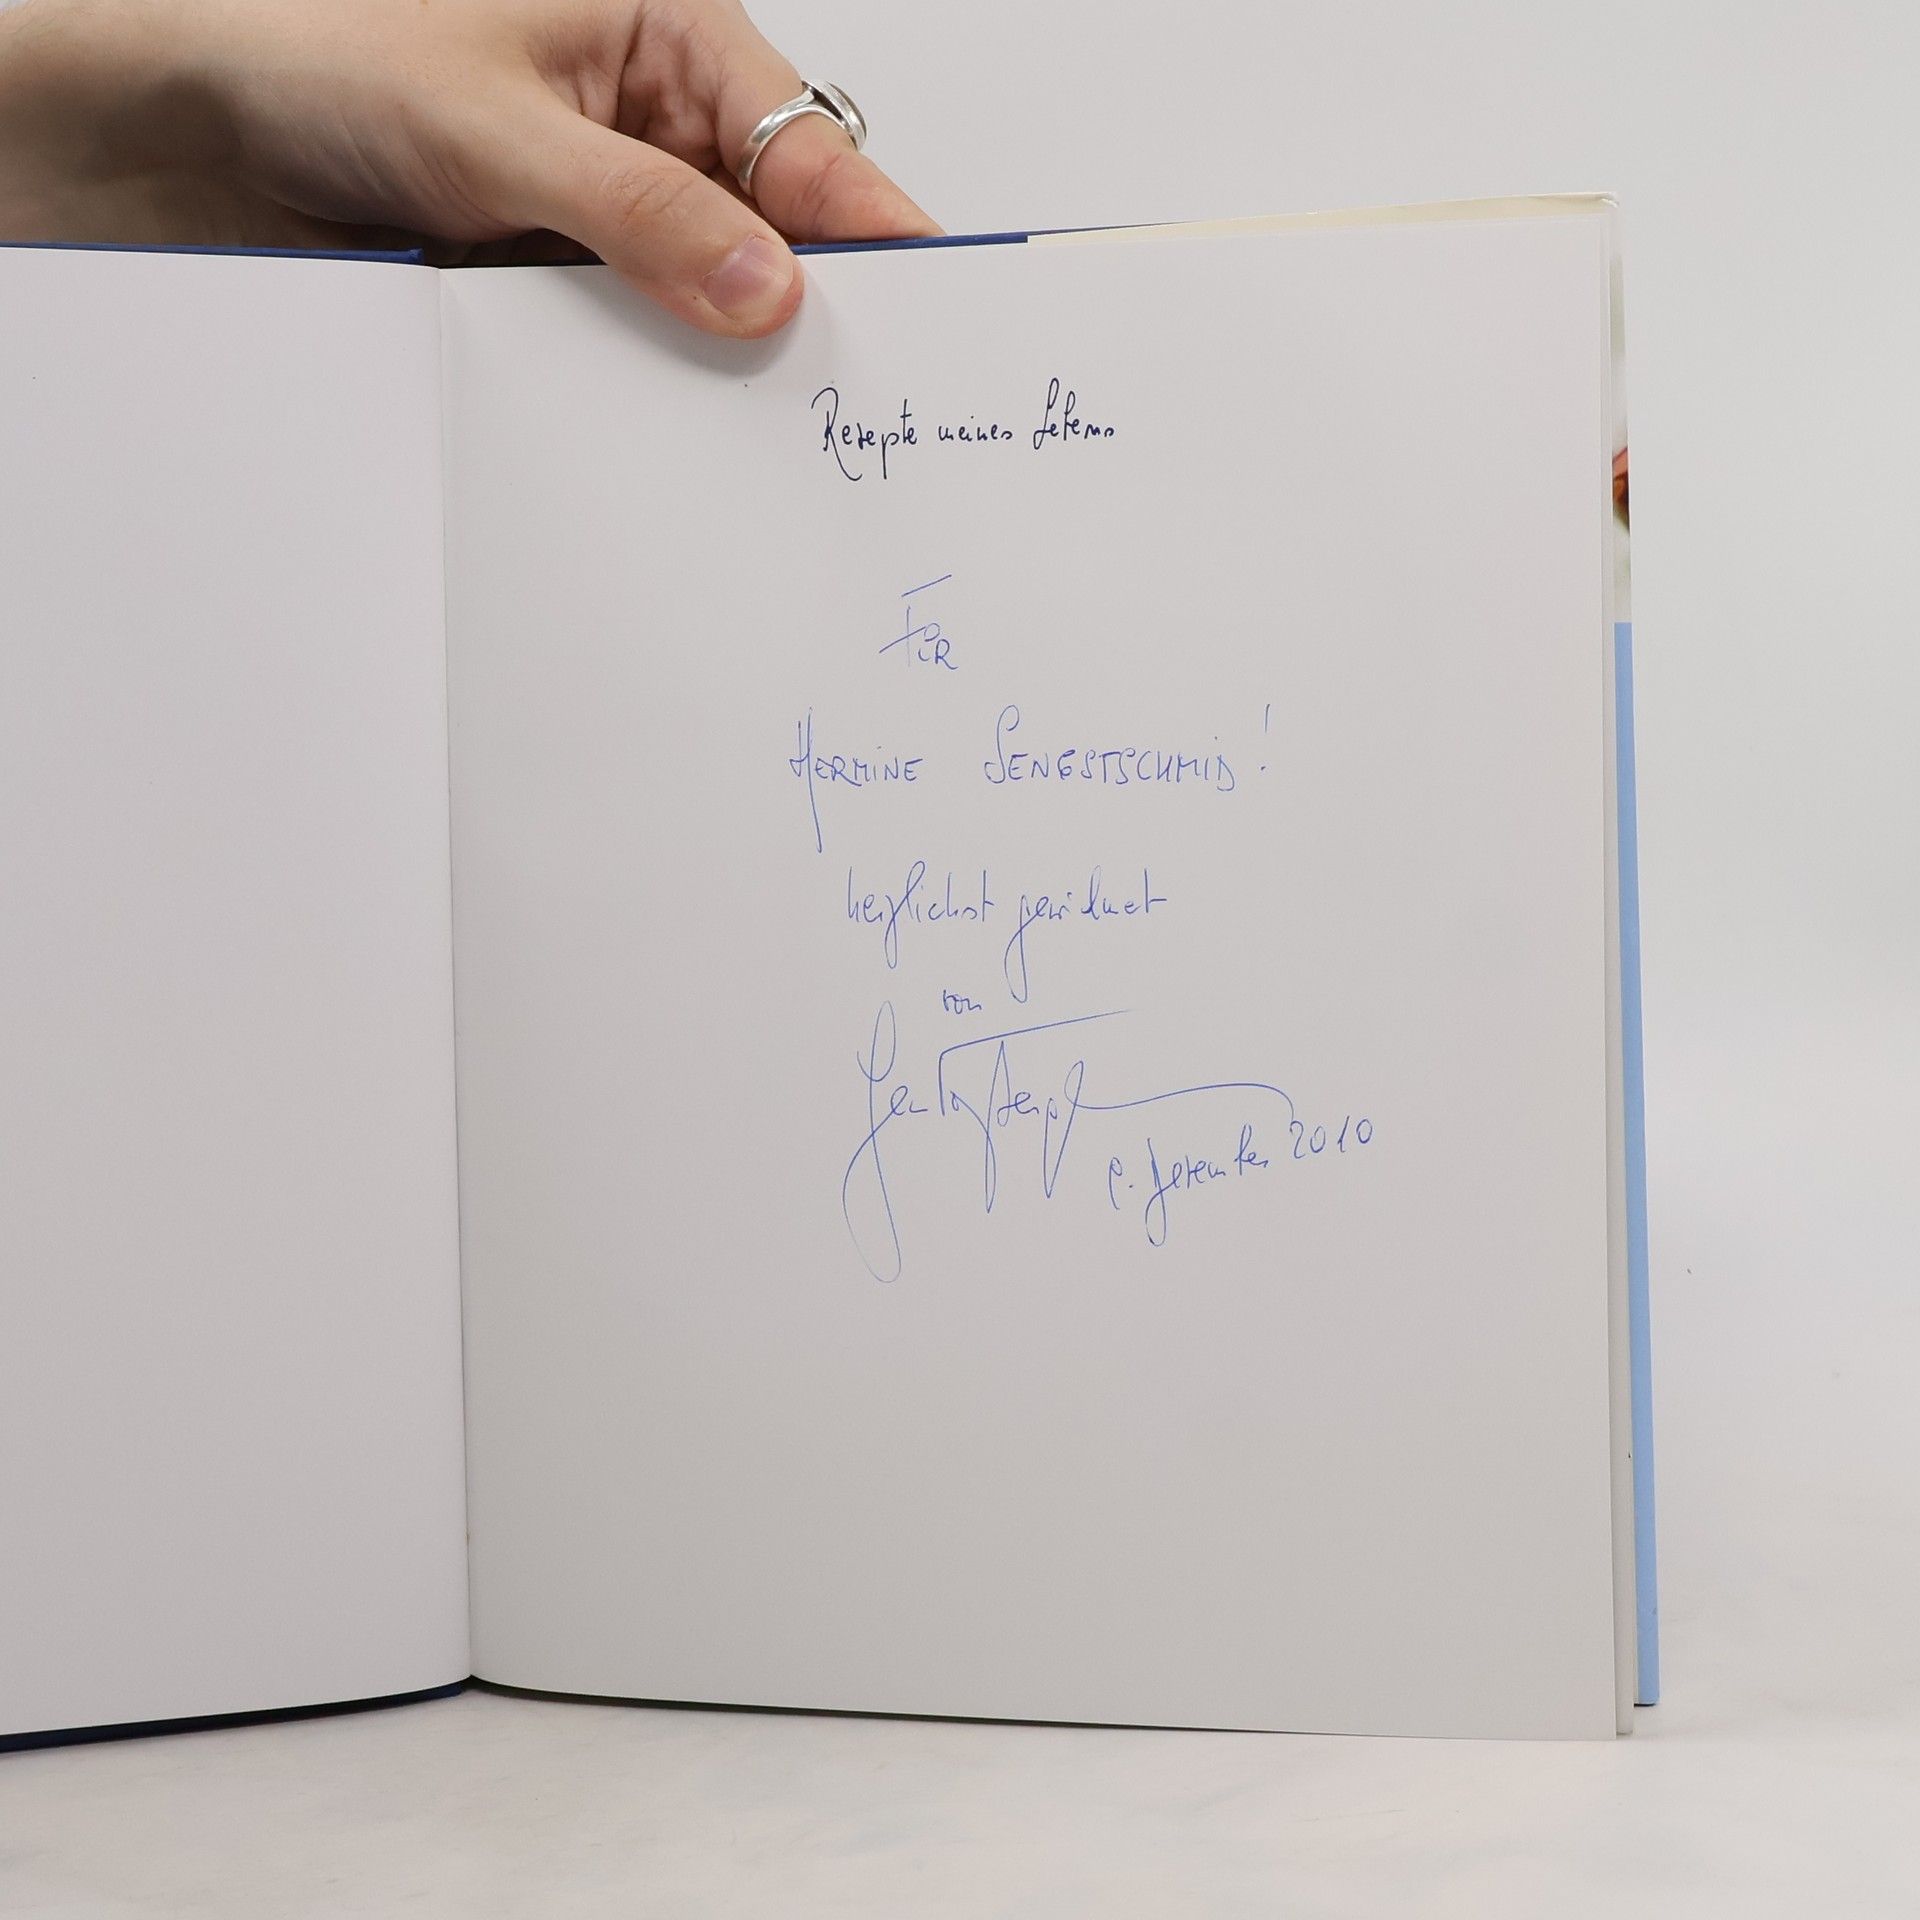 Rezepte meines Lebens
Für
HERMINE SENGSTSCHMID!
herzlichst gewidmet
von
Dezember 2010